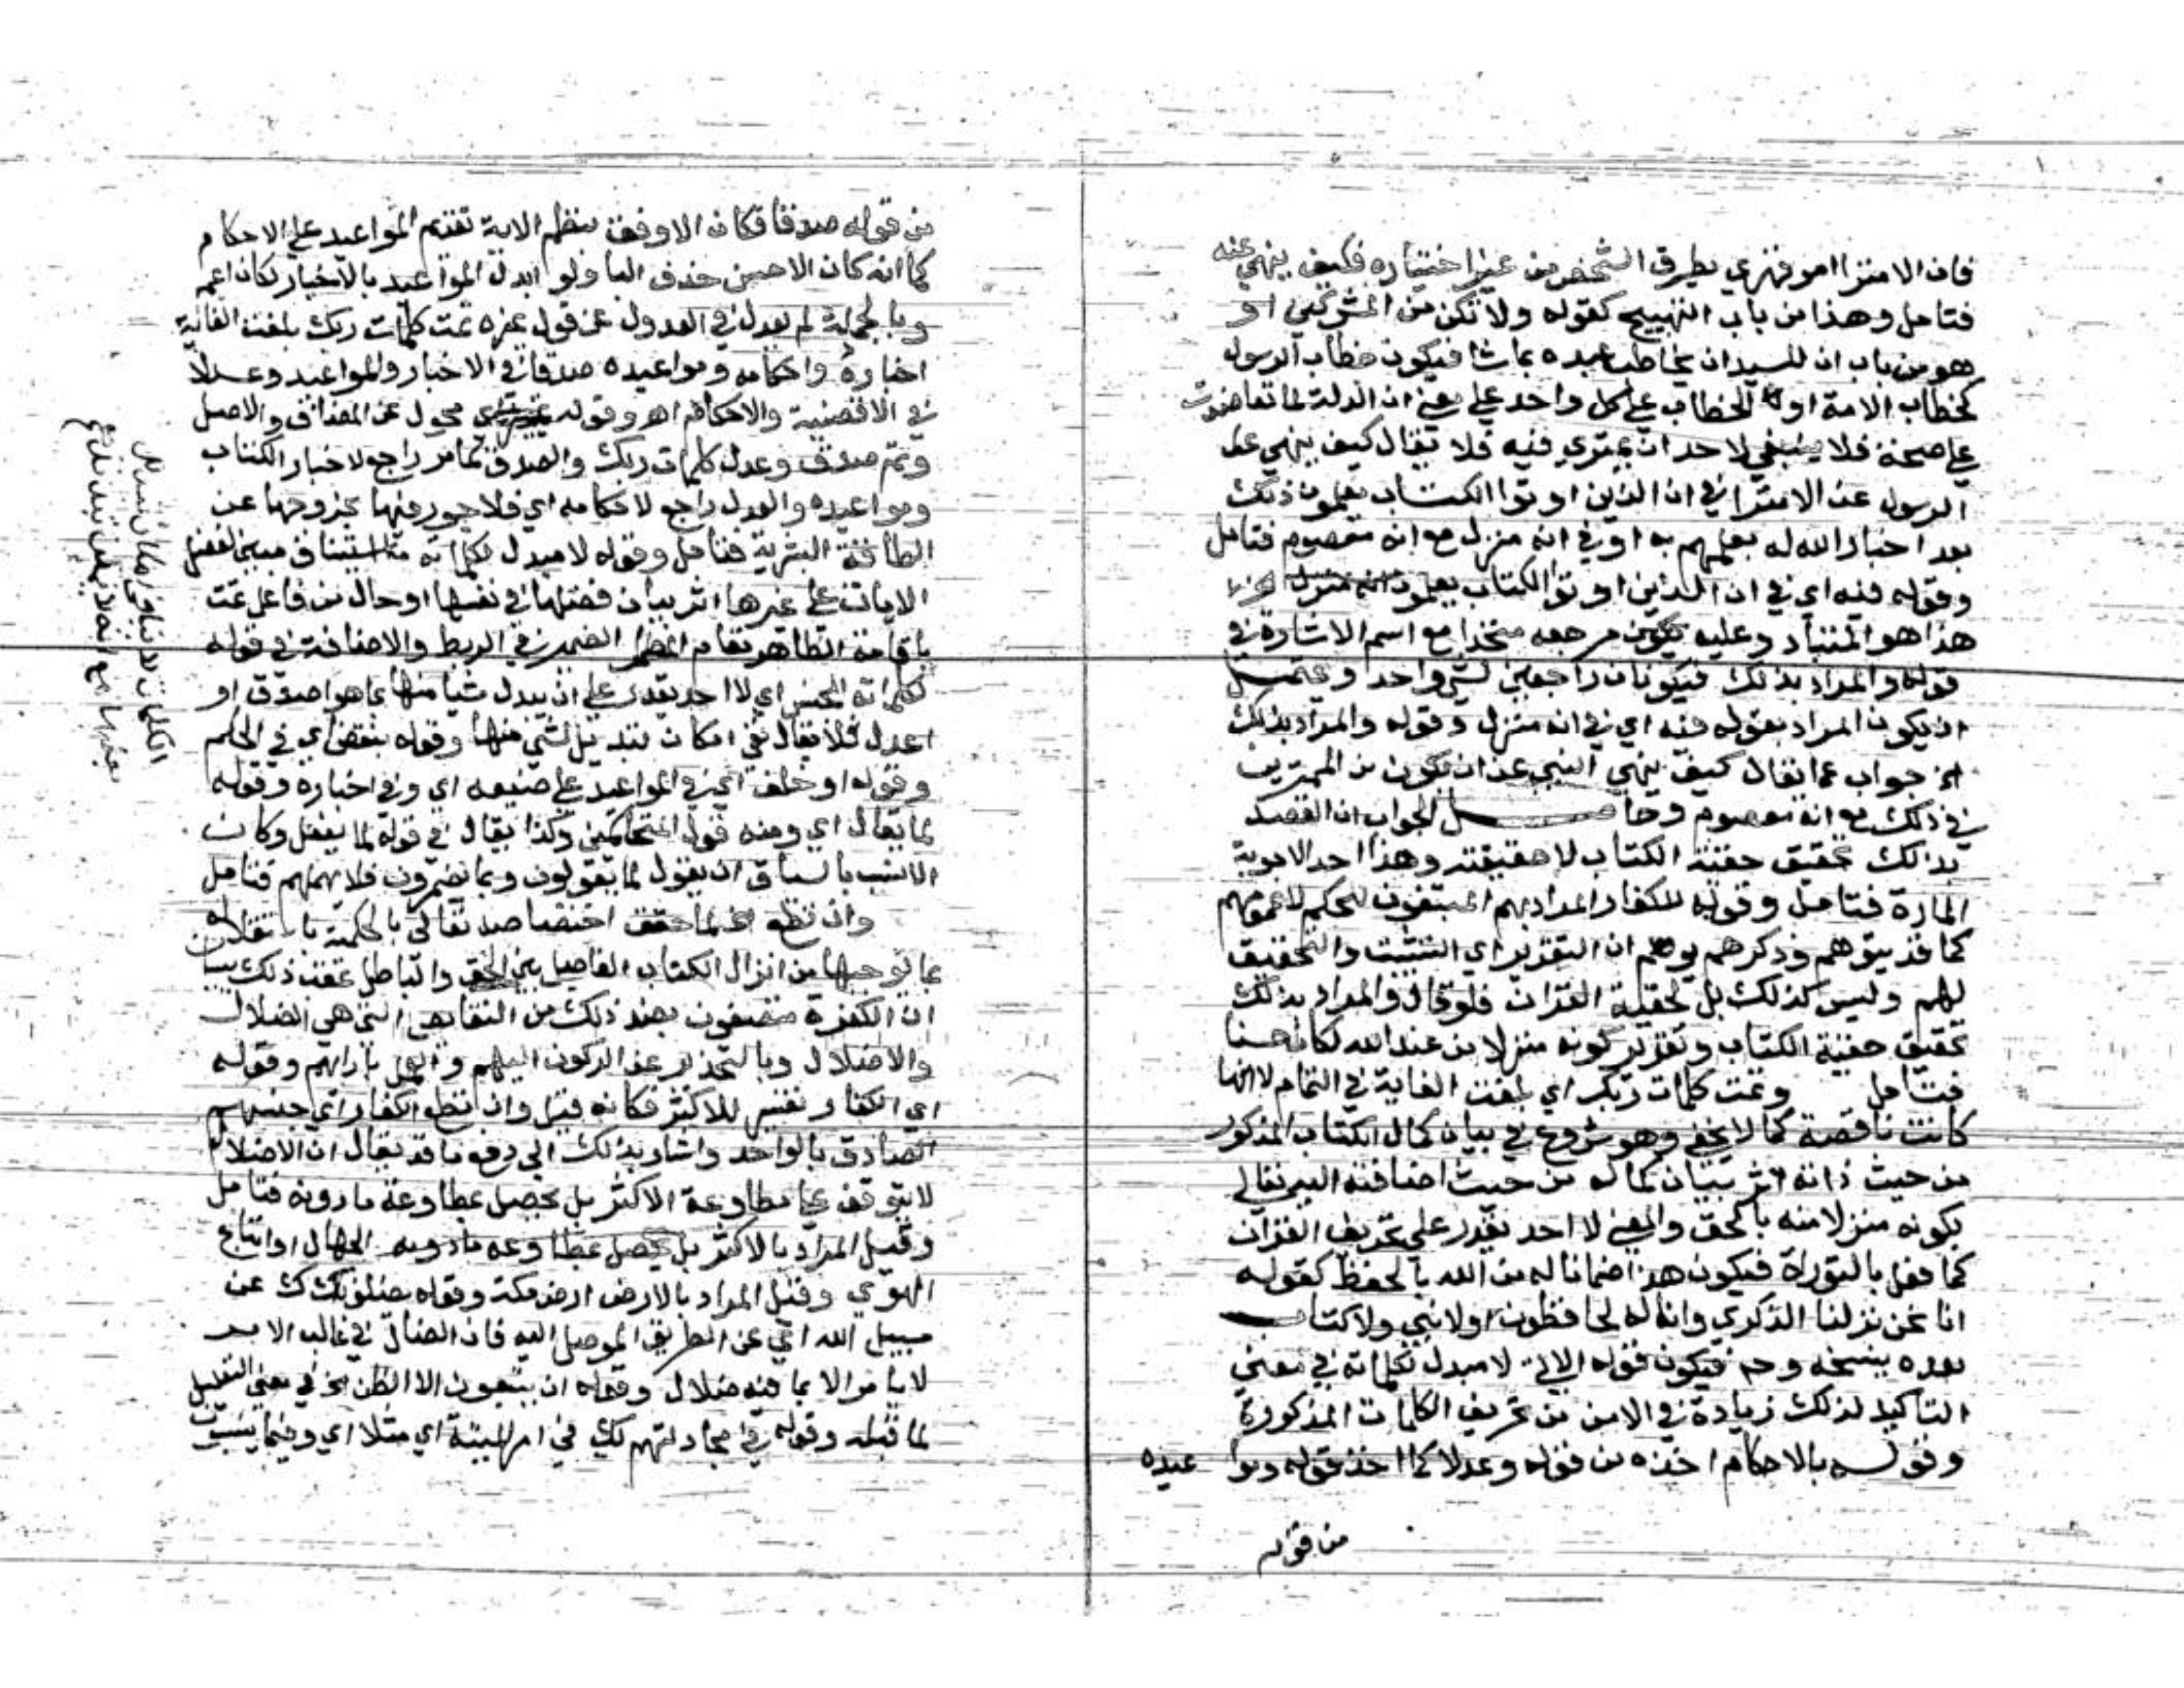 فان الامترا امر قهري يطرق الشخص من غير اختياره فكيف ينهي عنه
فتامل وهذا من باب التهييج كقوله ولا تكن من المشركين او
هو من باب ان للسيد ان يخاطب عبده بما شا فيكون خطاب الرسول
كخطاب الامة او الخطاب على كل واحد على معني ان الدلة لما تعاضدت
على صحته فلا ينبغي لاحد ان يمتري فيه فلا يقال كيف ينهي
الرسول عن الامترا في ان الذين اوتوا الكتاب يعلمون ذلك
بعد اخبار الله له بعلمهم به او في انه منزل مع انه معصوم فتامل
وقوله فيه اي في ان الذين اوتوا الكتاب يعلمون انه منزل
هذا هو المتبادر وعليه يكون مرجعه متحدا مع اسم الاشارة في
قوله والمراد بذلك فيكونان راجعين لشي واحد ويحتمل
ان يكون المراد بقوله فيه اي في انه منزل وقوله والمراد بذلك
الخ جواب عما يقال كيف ينهي النبي عن ان يكون من الممترين
في ذلك مع انه معصوم وحاصل الجواب ان القصد
بذلك تحقيق حقية الكتاب لا حقيقته وهذا احد الاجوبة
المارة فتامل وقوله للكفار المراد بهم المبتغون لحكم
كما قد يتوهم وذكرهم يوهم ان التقرير اي التثبت والتحقيق
لهم وليس كذلك بل لحقية القران فلو قال والمراد بذلك
تحقيق حقية الكتاب وتقرير كونه منزلا من عند الله لكان حسنا
فتامل وتمت كلمات ربك اي بلغت الغاية في التمام لا انها
كانت ناقصة كما لا يخفي وهو شروع في بيان كمال الكتاب المذكور
من حيث ذاته اثر بيان كماله من حيث اضافته اليه تعالي
بكونه منزلا منه بالحق والمعني لا احد يقدر على تحريف القران
كما فعل بالتوراة فيكون هذا ضمانا له من الله بالحفظ كقوله
انا نحن نزلنا الذكري وانا له لحافظون او لا نبي ولا كتاب
بعده ينسخه وح فيكون قوله الاتي لا مبدل لكلماته في معني
التاكيد لذلك زيادة في الامن من تحريف الكلمات المذكورة
وقوله بالاحكام اخذه من قوله وعدلا كما اخذ قوله ومواعيده
من قوله
من قوله صدقا فكان الاوفق بنظم الاية تقديم المواعيد على الاحكام
كما انه كان الاحسن حذف البا ولو ابدل المواعيد بالاخبار لكان اعم
وبالجملة لم يعدل في العدول عن قول غيره تمت كلمات ربك بلغت الغاية
اخباره واحكامه ومواعيده صدقا في الاخبار والمواعيد وعدلا
في الاقضية والاحكام اهو وقوله محول عن المضاف والاصل
وتم صدق وعدل كلمات ربك والصدق كما مر راجع لاخبار الكتاب
ومواعيده والعدل راجع لاحكامه اي فلا جور فيها بخروجها عن
الطاقة البشرية فتامل وقوله لا مبدل لكلماته استيناف مبين لفضل
الايات على غيرها اثر بيان فضلها في نفسها او حال من فاعل تمت
باقامة الظاهر مقام الضمير في الربط والاضافة في قوله
لكلماته للجنس اي لا احد يقدر على ان يبدل شيا منها بما هو اصدق او
اعدل فلا يقال نفي امكان تبديل لشي منها وقوله بنقض اي في الحكم
وقوله او خلف اي في المواعيد على صنيعه اي وفي اخباره وقوله
لما يقال اي ومنه قول المتحاكمين وكذا يقال في قوله لما يفعل وكان
الانسب بالسياق ان يقول لما يقولون وبما يضمرون فلا يهملهم فتامل
وان تطع الخ لما حقق اختصاصه تعالي بالحكمية باستقلاله
بما يوجبها من انزال الكتاب الفاصل بين الحق والباطل عقب ذلك ببيان
ان الكفرة متصفون بضد ذلك من النقايص التي هي الضلال
والاضلال وبالتحذير عن الركون اليهم والعمل بارايهم وقوله
اي الكفار تفسير للاكثر فكانه قيل وان تطع الكفار اي جنسهم
الصادق بالواحد واشار بذلك الي دفع ما قد يقال ان الاضلال
لا يتوقف على مطاوعة الاكثر بل يحصل بمطاوعة ما دونه فتامل
وقيل المراد بالاكثر بل يحصل بمطاوعة ما دونه الجهال او اتباع
الهوي وقيل المراد بالارض ارض مكة وقوله يضلوك عن
سبيل الله اي عن الطريق الموصل اليه فان الضال في غالب الامر
لا يامر الا بما فيه ضلال وقوله ان يتبعون الا الظن الخ في معني التعليل
لما قبله وقوله في مجادلتهم لك في امر الميتة اي مثلا اي وفيما ينسب